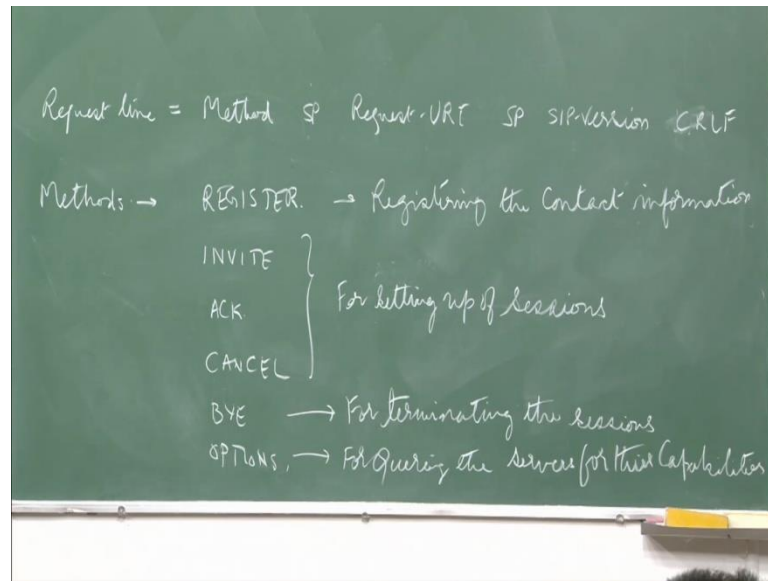 Request line = Method SP Request-URI SP SIP-Version CRLF
Methods → REGISTER. → Registering the Contact information
INVITE
ACK
For setting up of sessions
CANCEL
BYE → For terminating the sessions
OPTIONS, → For Quering the servers for their Capabilities